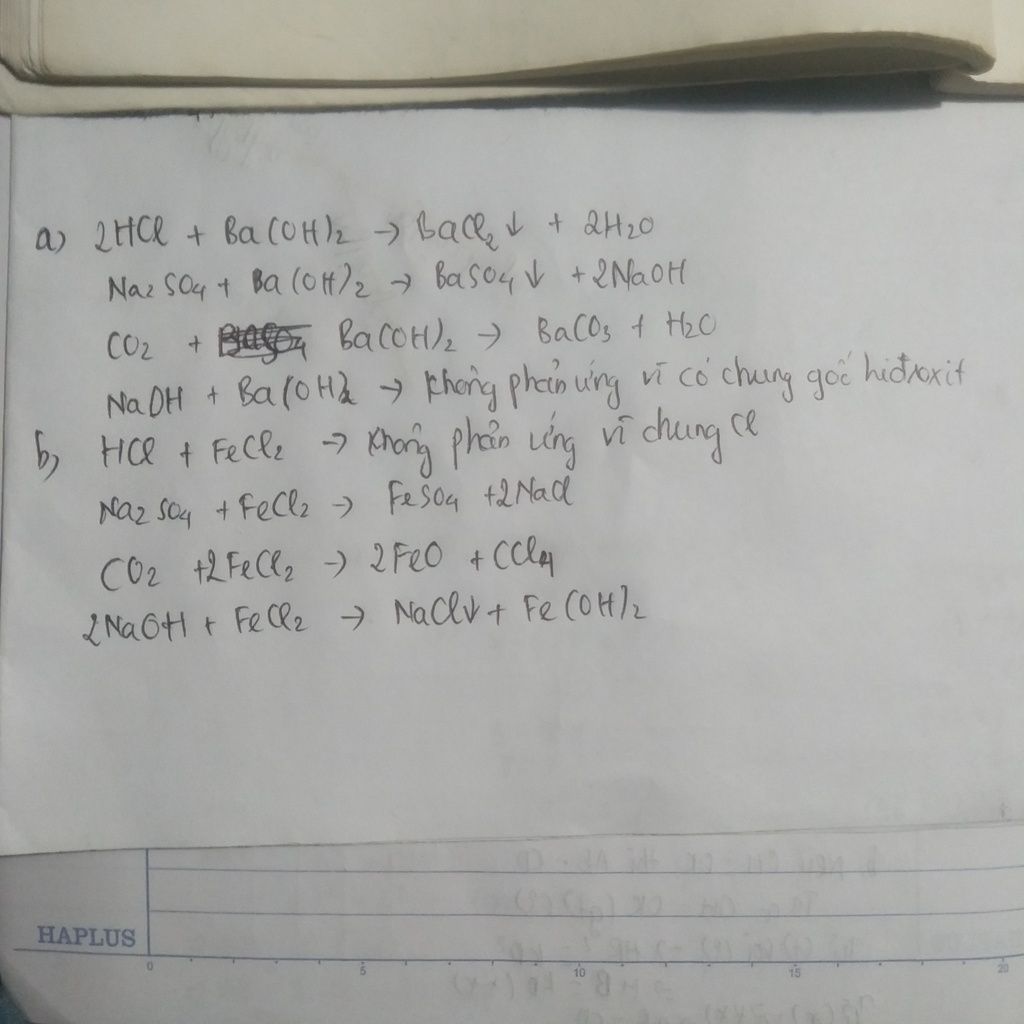 a) 2HCl + Ba(OH)2 → BaCl2 ↓ + 2H2O
Na2SO4 + Ba(OH)2 → BaSO4 ↓ + 2NaOH
CO2 + Ba(OH)2 → BaCO3 + H2O
NaOH + Ba(OH)2 → Không phản ứng vì có chung gốc hiđroxit
b) HCl + FeCl2 → Không phản ứng vì chung Cl
Na2SO4 + FeCl2 → FeSO4 + 2NaCl
CO2 + 2FeCl2 → 2FeO + CCl4
2NaOH + FeCl2 → NaCl↓ + Fe(OH)2
HAPLUS
0 5 10 15 20